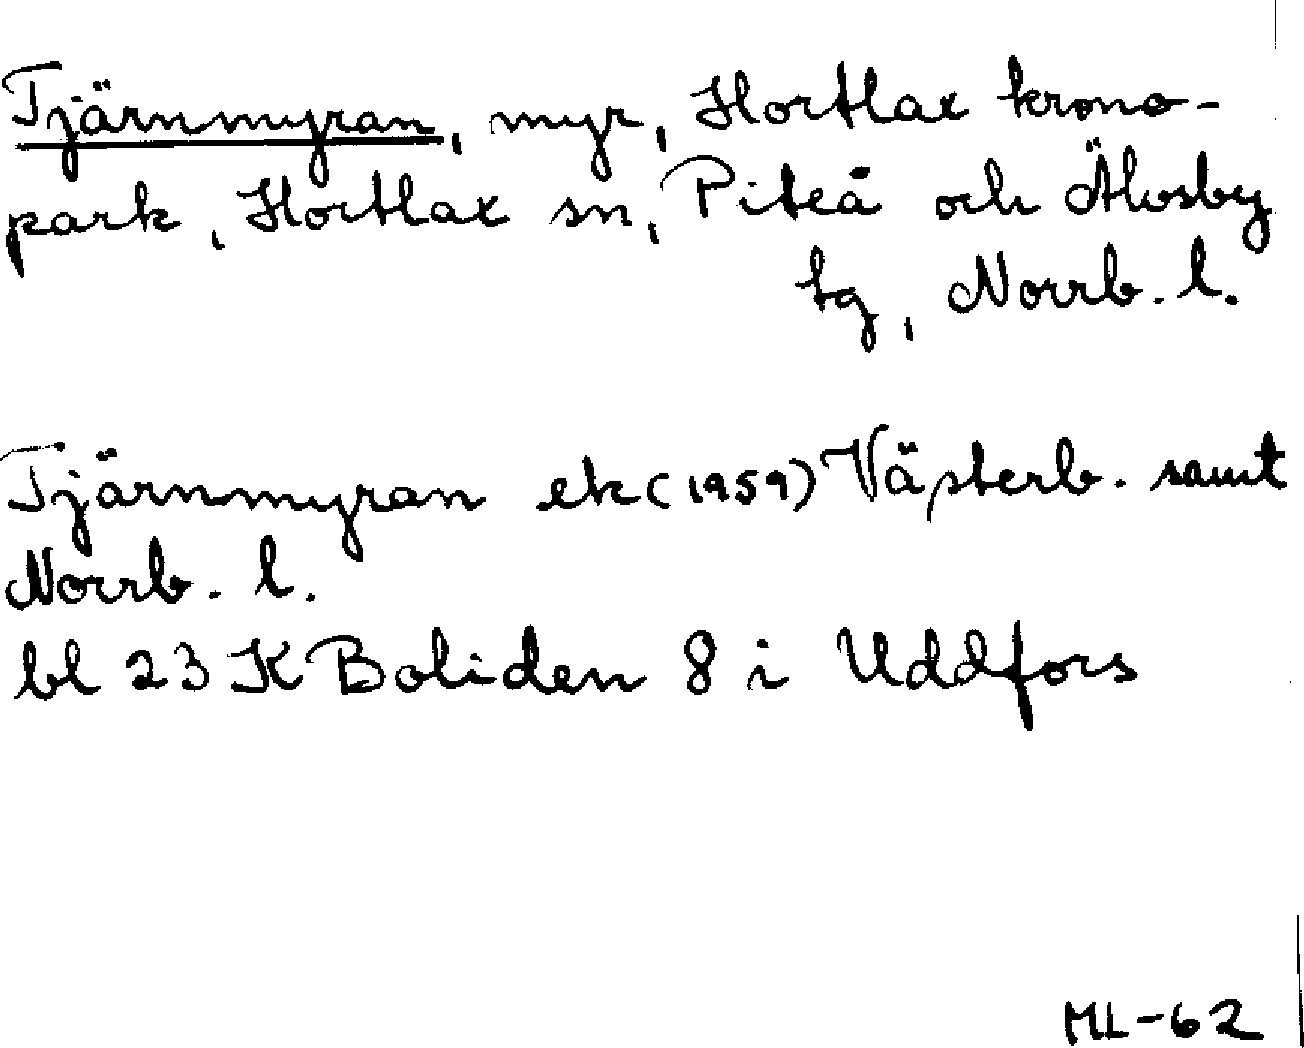 Tjärnmyran, myr, Hortlax krono-
park, Hortlax sn, Piteå och Älvsby
tg, Norrb. l.
Tjärnmyran ek (1959) Västerb. samt
Norrb. l.
bl 23 K Boliden 8 i Uddfors
ML-62